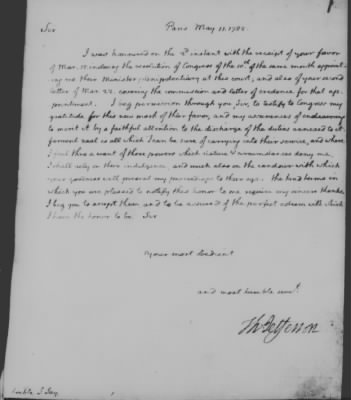 Sir Paris May 11. 1785.
I was honoured on the 2d instant with the receipt of your favor
of Mar. 17. inclosing the resolution of Congress of the 10th of the same month appoint-
ing me their Minister plenipotentiary at this court, and also of your second
letter of Mar. 22. covering the commission and letter of credence for that ap-
pointment. I beg permission through you, Sir, to testify to Congress my
gratitude for this new mark of their favor, and my assurances of endeavoring
to merit it by a faithful attention to the discharge of the duties annexed to it.
fervent zeal is all which I can be sure of carrying into their service; and where
I fail thro' a want of those powers which nature & circumstances deny me,
I shall rely on their indulgence, and much also on the candour with which
your goodness will present my proceedings to their eye. the kind terms in
which you are pleased to notify this honor to me require my sincere thanks.
I beg you to accept them and to be assured of the perfect esteem with which
I have the honor to be Sir
Your most obedient
and most humble servt.
Th: Jefferson
honble J. Jay